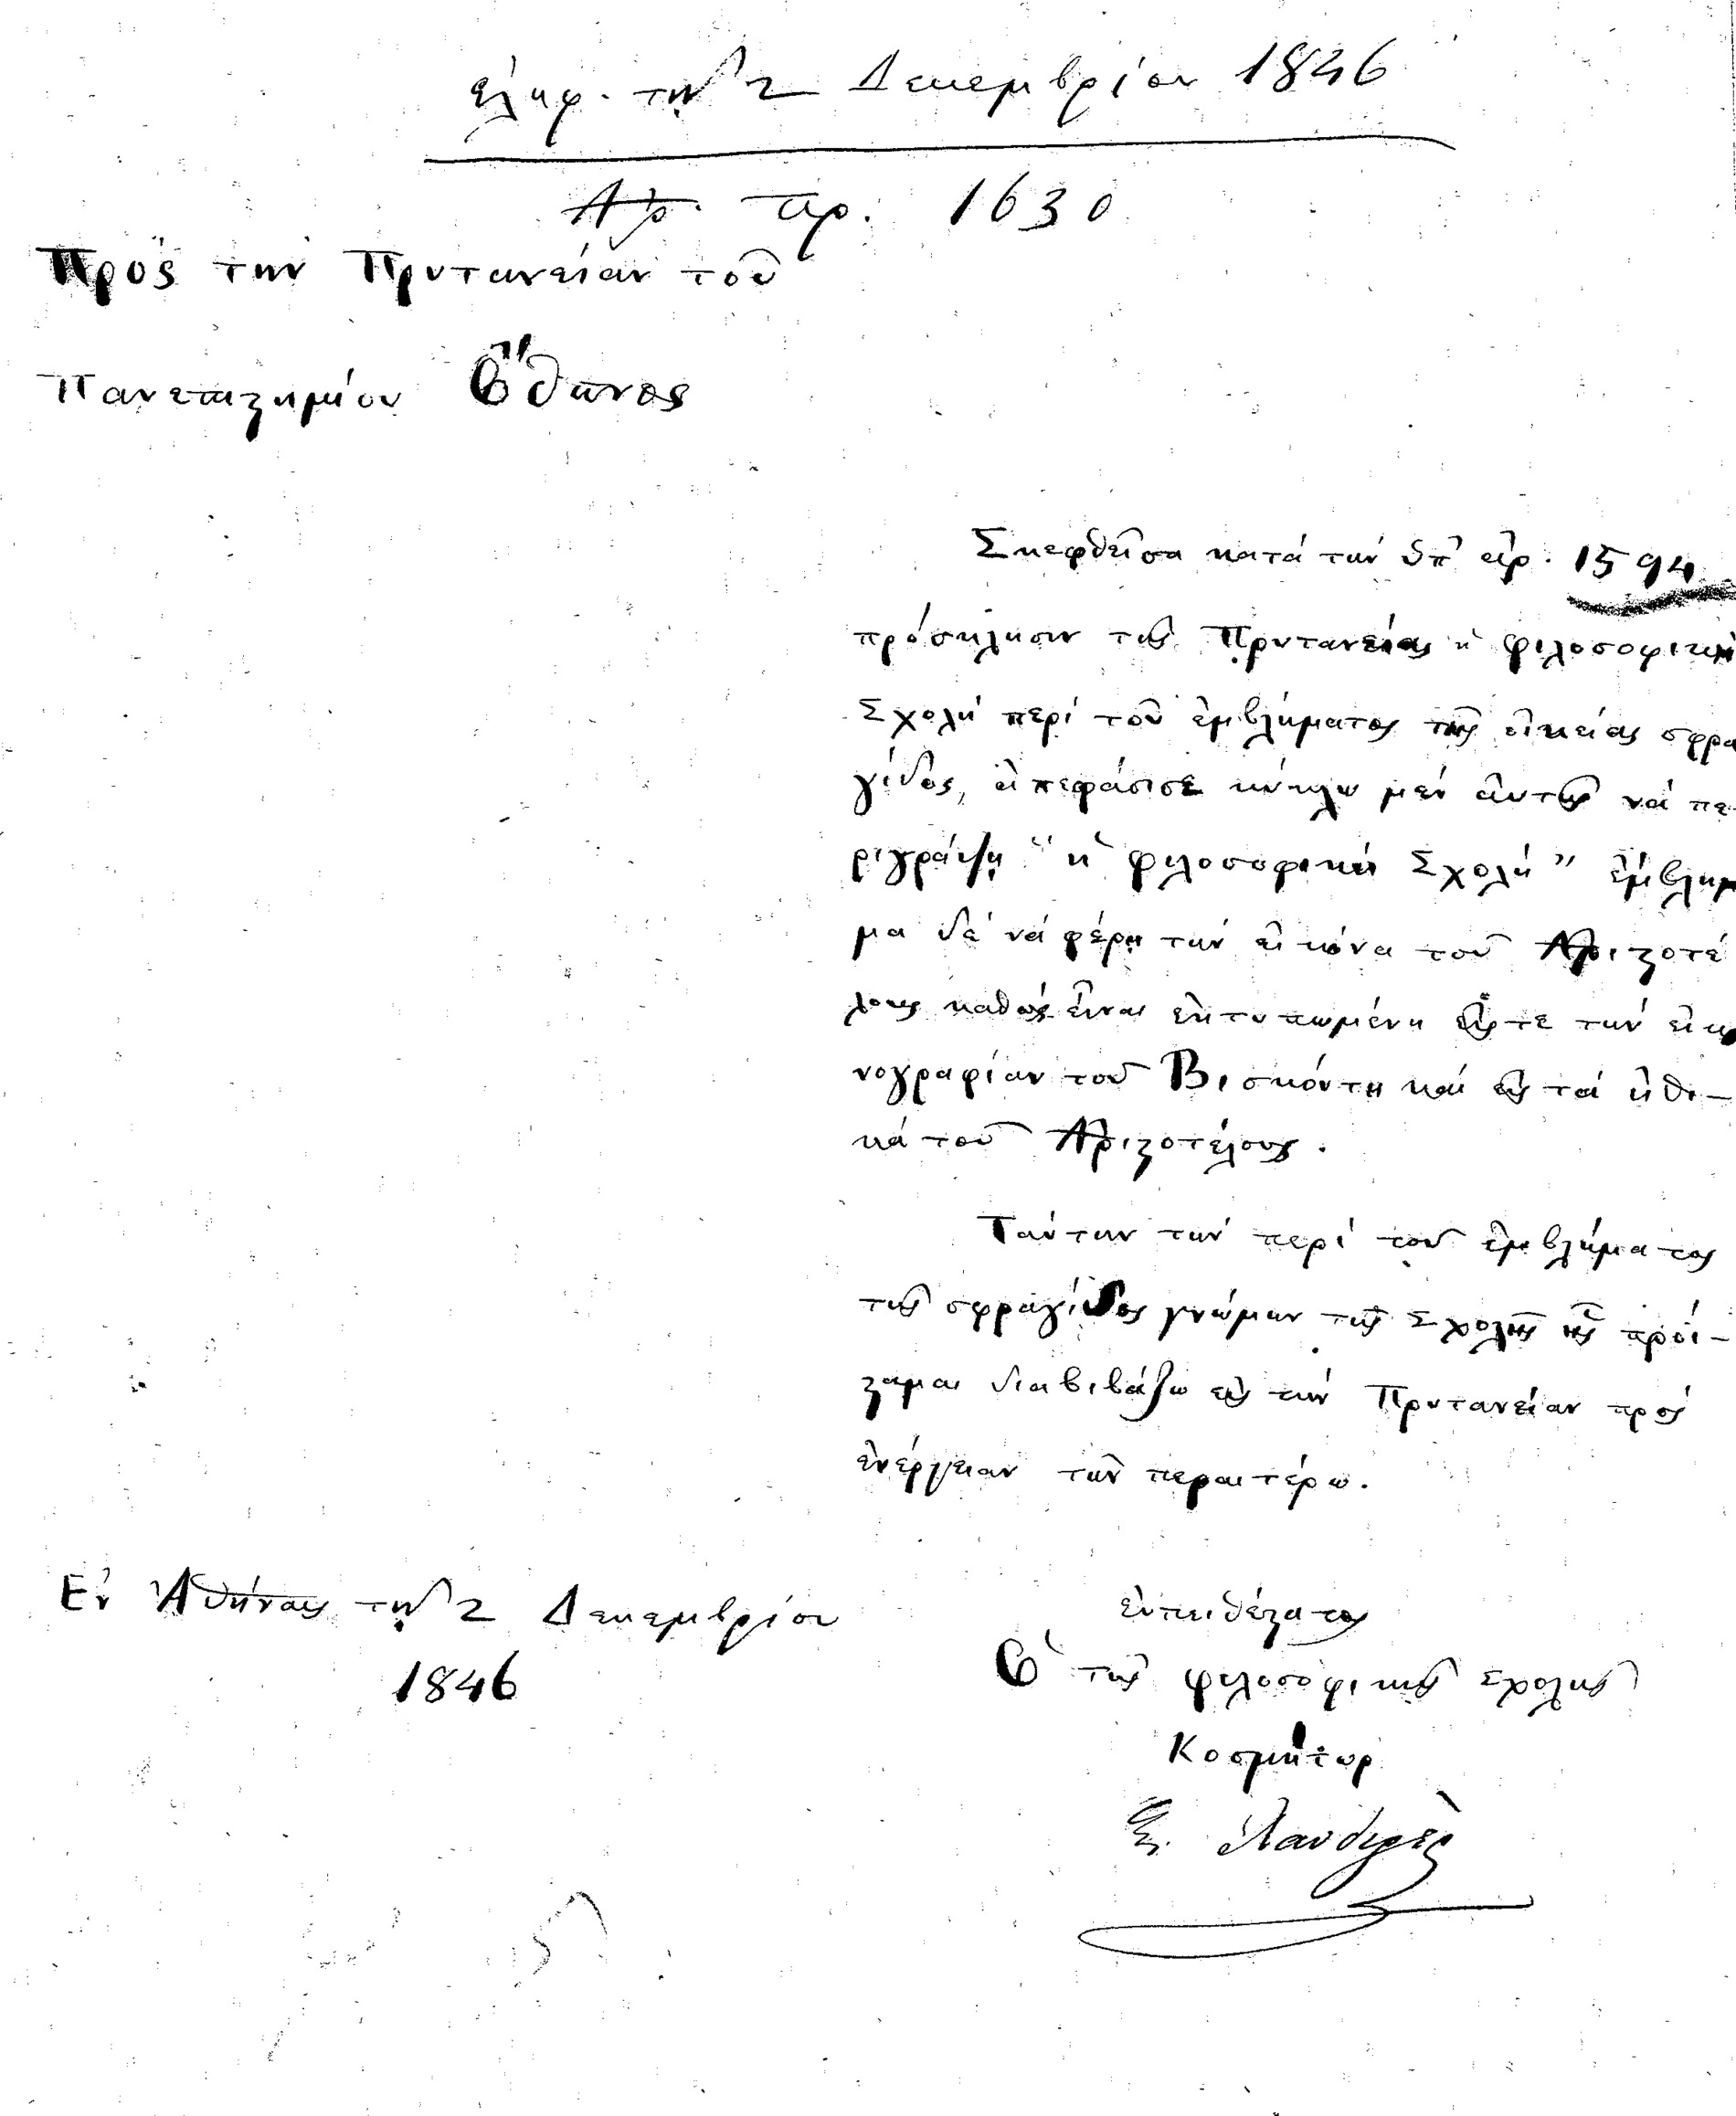 ἐλήφ. τῇ 2 Δεκεμβρίου 1846
Ἀρ. πρ. 1630
Πρὸς τὴν Πρυτανείαν τοῦ
Πανεπιστημίου Ὄθωνος
Σκεφθεῖσα κατὰ τὴν ὑπ' ἀρ. 1594
πρόσκλησιν τῆς Πρυτανείας ἡ φιλοσοφικὴ
Σχολὴ περὶ τοῦ ἐμβλήματος τῆς οἰκείας σφρα
γίδος, ἀπεφάσισε κύκλῳ μὲν αὐτῆς νὰ πε-
ριγράψῃ "ἡ φιλοσοφικὴ Σχολὴ" ἔμβλημ
μα δὲ νὰ φέρῃ τὴν εἰκόνα τοῦ Ἀριστοτέ
λους καθὼς εἶναι ἐκτυπωμένη εἴς τε τὴν εἰκο
νογραφίαν τοῦ Βισκόντη καὶ εἰς τὰ ἠθι-
κὰ τοῦ Ἀριστοτέλους.
Ταύτην τὴν περὶ τοῦ ἐμβλήματος
τῆς σφραγίδος γνώμην τῆς Σχολῆς ἧς προΐ-
σταμαι διαβιβάζω εἰς τὴν Πρυτανείαν πρὸς
ἐνέργειαν τῶν περαιτέρω.
Ἐν Ἀθήναις τῇ 2 Δεκεμβρίου
1846
εὐπειθέστατος
Ὁ τῆς φιλοσοφικῆς Σχολῆς
Κοσμήτωρ
Ξ. Λάνδερερ